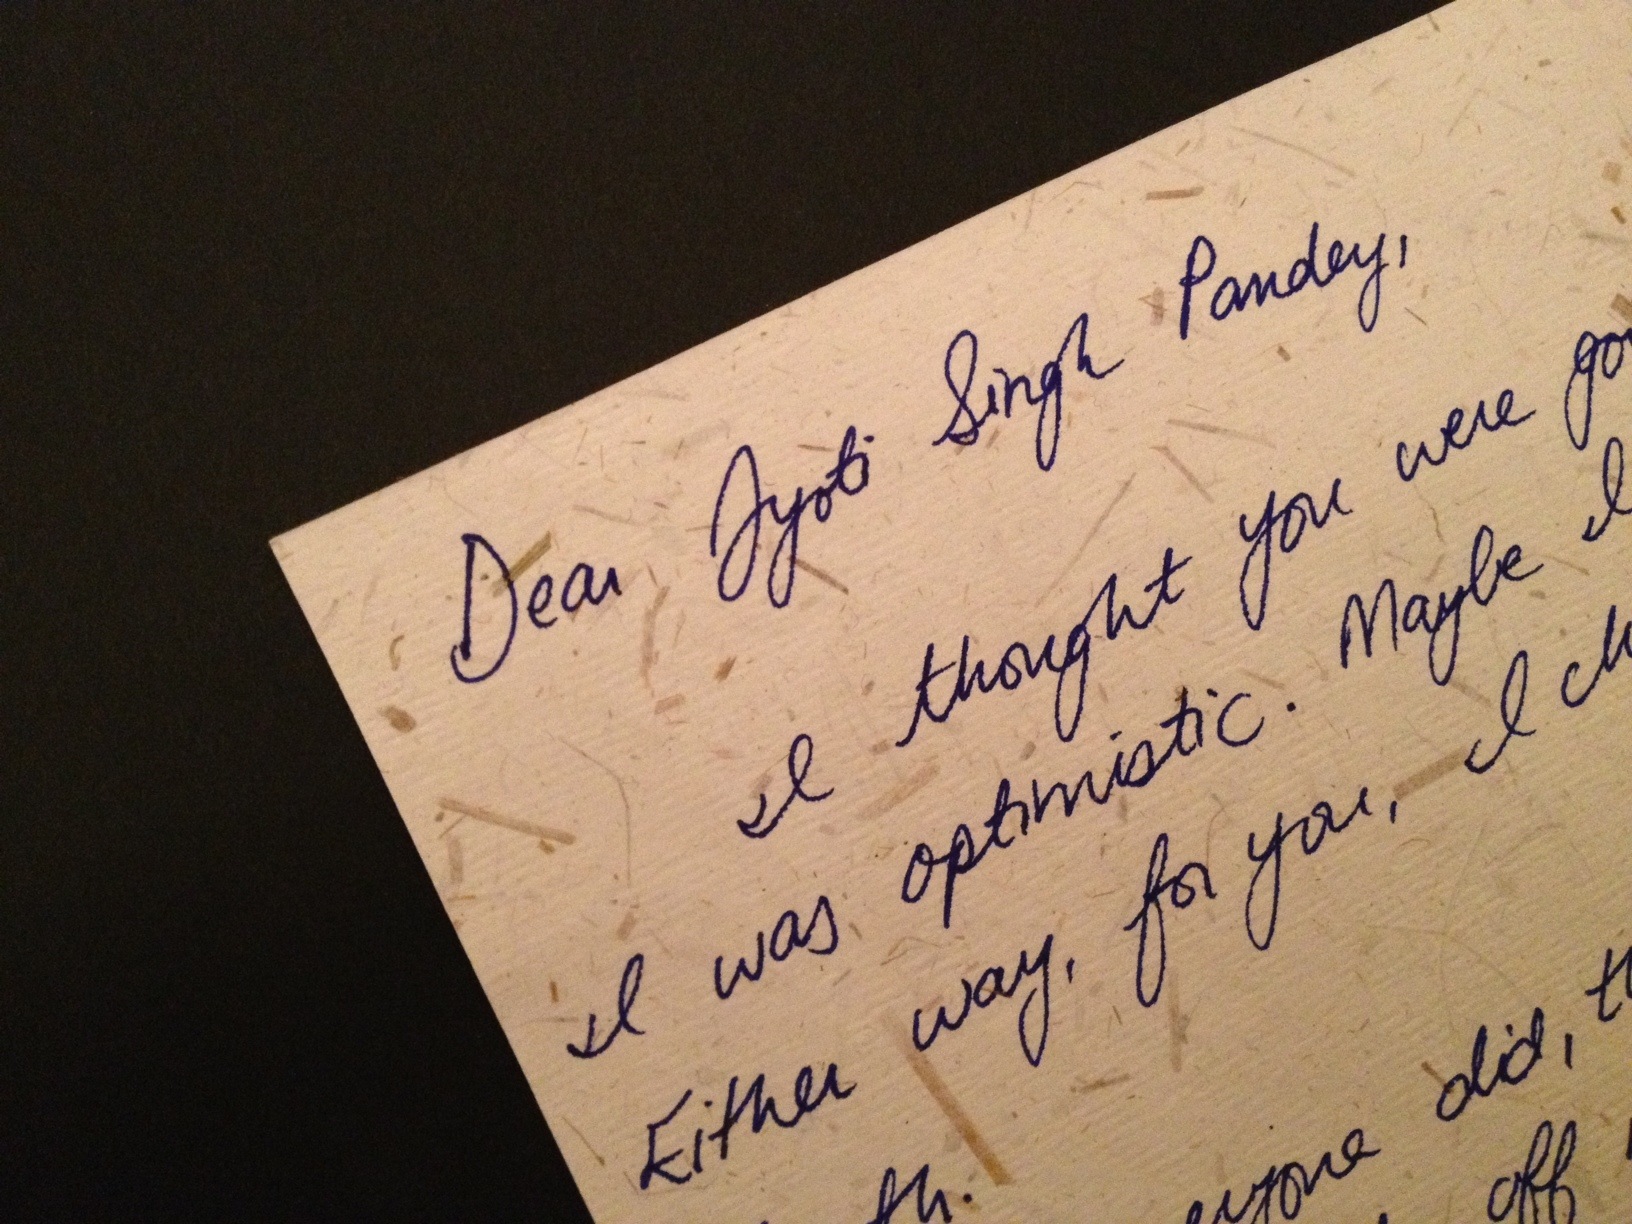 Dear Jyoti Singh Pandey,
I thought you were
I was optimistic. Maybe I
Either way, for you, I
did,
off